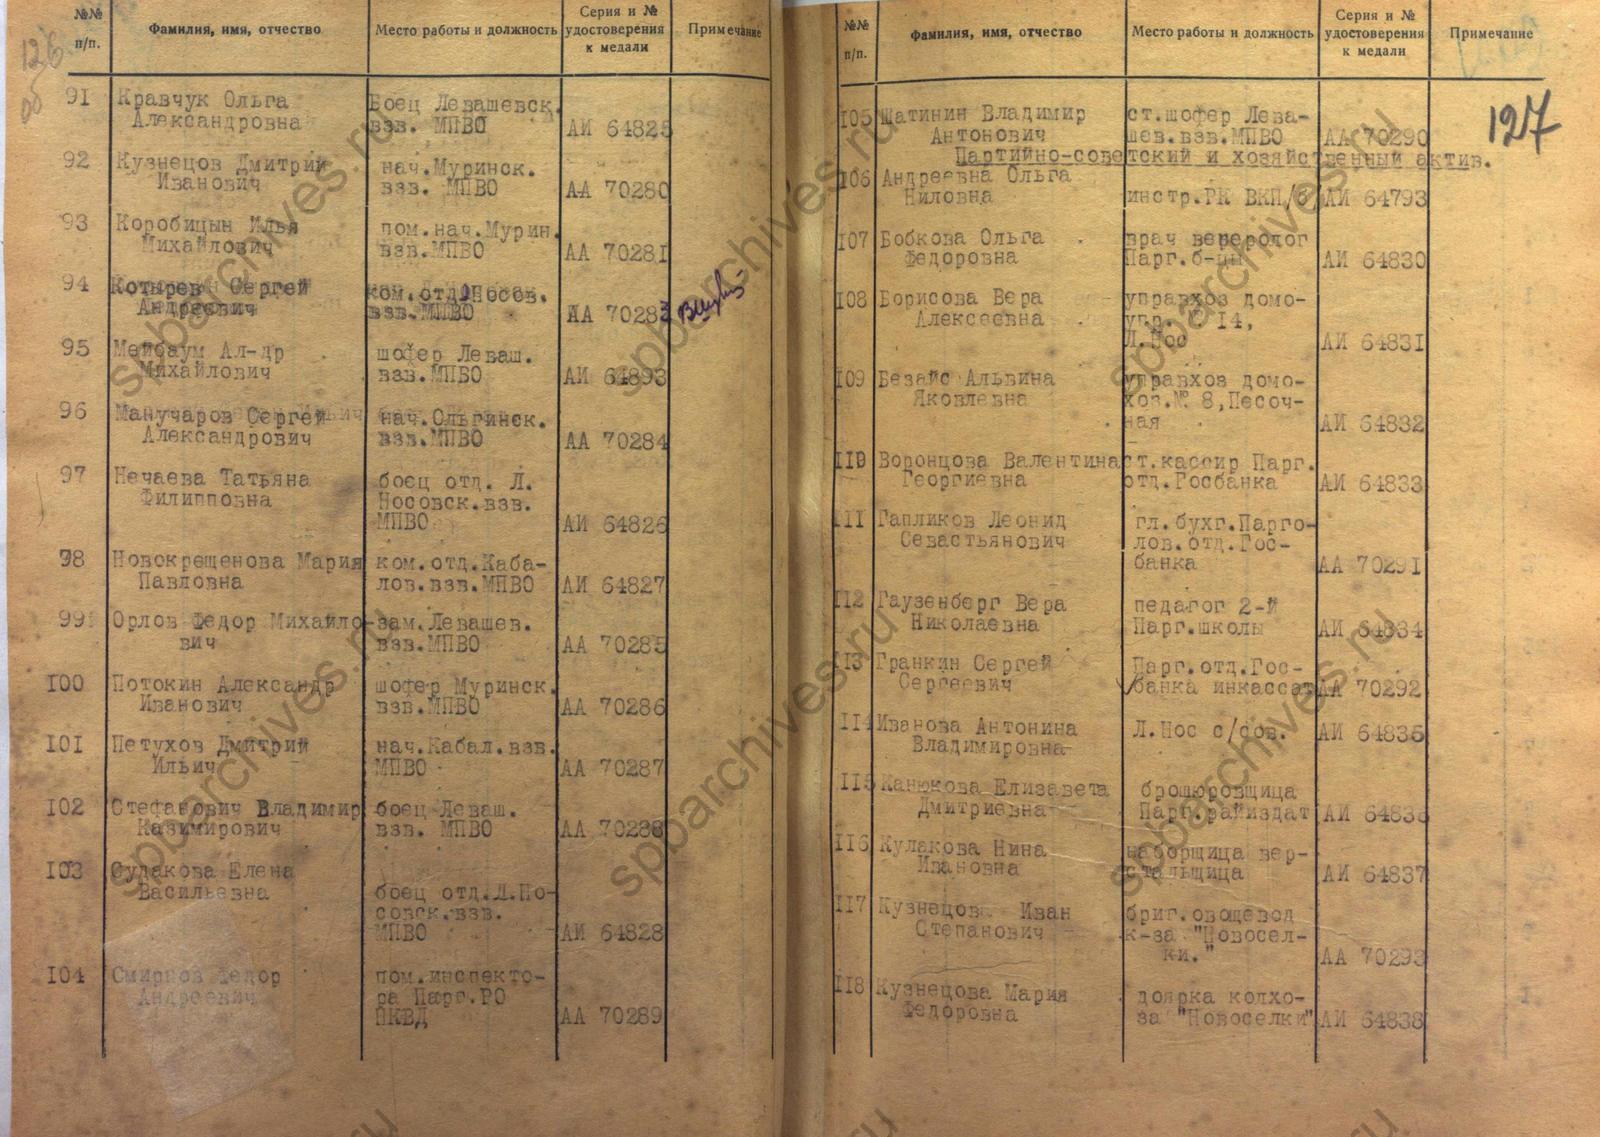 126
об
№№
п/п.
Фамилия, имя, отчество
Место работы и должность
Серия и №
удостоверения
к медали
Примечание
91 Кравчук Ольга
Александровна
Боец Левашевск.
взв. МПВО
АИ 64825
92 Кузнецов Дмитрий
Иванович
нач.Муринск.
взв. МПВО
АА 70280
93 Коробицын Илья
Михайлович
пом.нач.Мурин.
взв.МПВО
АА 70281
94 Котырев Сергей
Андреевич
ком.отд.Носов.
взв.МПВО
АА 70283
95 Мейбаум Ал-др
Михайлович
шофер Леваш.
взв.МПВО
АИ 64893
96 Манучаров Сергей
Александрович
нач.Ольгинск.
взв.МПВО
АА 70284
97 Нечаева Татьяна
Филипповна
боец отд. Л.
Носовск.взв.
МПВО
АИ 64826
98 Новокрещенова Мария
Павловна
ком.отд.Каба-
лов.взв.МПВО
АИ 64827
99 Орлов Федор Михайло-
вич
зам.Левашев.
взв.МПВО
АА 70285
100 Потокин Александр
Иванович
шофер Муринск.
взв.МПВО
АА 70286
101 Петухов Дмитрий
Ильич
нач.Кабал.взв.
МПВО
АА 70287
102 Стефанович Владимир
Казимирович
боец Леваш.
взв. МПВО
АА 70288
103 Судакова Елена
Васильевна
боец отд.Л.Но-
совск.взв.
МПВО
АИ 64828
104 Смирнов Федор
Андреевич
пом.инспекто-
ра Парг.РО
НКВД
АА 70289
127
№№
п/п.
Фамилия, имя, отчество
Место работы и должность
Серия и №
удостоверения
к медали
Примечание
105 Шатинин Владимир
Антонович
ст.шофер Лева-
шев.взв.МПВО
АА 70290
Партийно-советский и хозяйственный актив.
106 Андреевна Ольга
Ниловна
инстр.РК ВКП/б
АИ 64793
107 Бобкова Ольга
Федоровна
врач веролог
Парг.б-цы
АИ 64830
108 Борисова Вера
Алексеевна
управхоз домо-
упр. № 14,
Л.Нос
АИ 64831
109 Безайс Альвина
Яковлевна
управхоз домо-
хоз.№ 8,Песоч-
ная
АИ 64832
110 Воронцова Валентина
Георгиевна
ст.кассир Парг.
отд.Госбанка
АИ 64833
111 Гапликов Леонид
Севастьянович
гл.бухг.Парго-
лов.отд.Гос-
банка
АА 70291
112 Гаузенберг Вера
Николаевна
педагог 2-й
Парг.школы
АИ 64834
113 Гранкин Сергей
Сергеевич
Парг.отд.Гос-
банка инкассат
АА 70292
114 Иванова Антонина
Владимировна
Л.Нос с/сов.
АИ 64835
115 Канюкова Елизавета
Дмитриевна
брошюровщица
Парг.райиздат
АИ 64836
116 Кулакова Нина
Ивановна
наборщица вер-
стальщица
АИ 64837
117 Кузнецов Иван
Степанович
бриг.овощевод
к-за "Новосел-
ки."
АА 70293
118 Кузнецова Мария
Федоровна
доярка колхо-
за "Новоселки"
АИ 64838
spbarchives.ru
spbarchives.ru
spbarchives.ru
spbarchives.ru
spbarchives.ru
spbarchives.ru